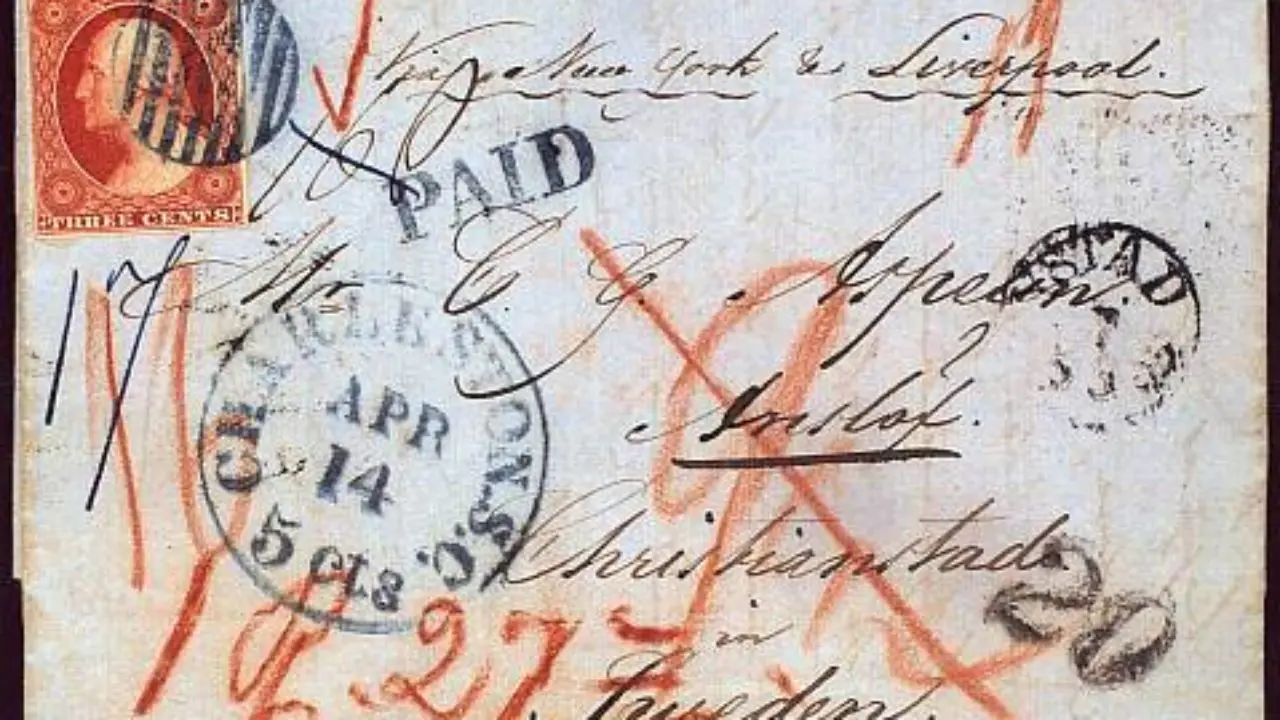 Via New York & Liverpool.
PAID
THREE CENTS
17
Mr C. G. Aspelin.
YSTAD
CHARLESTON. S.C.
APR
14
5 cts
Christianstad.
20
in
27
Sweden.